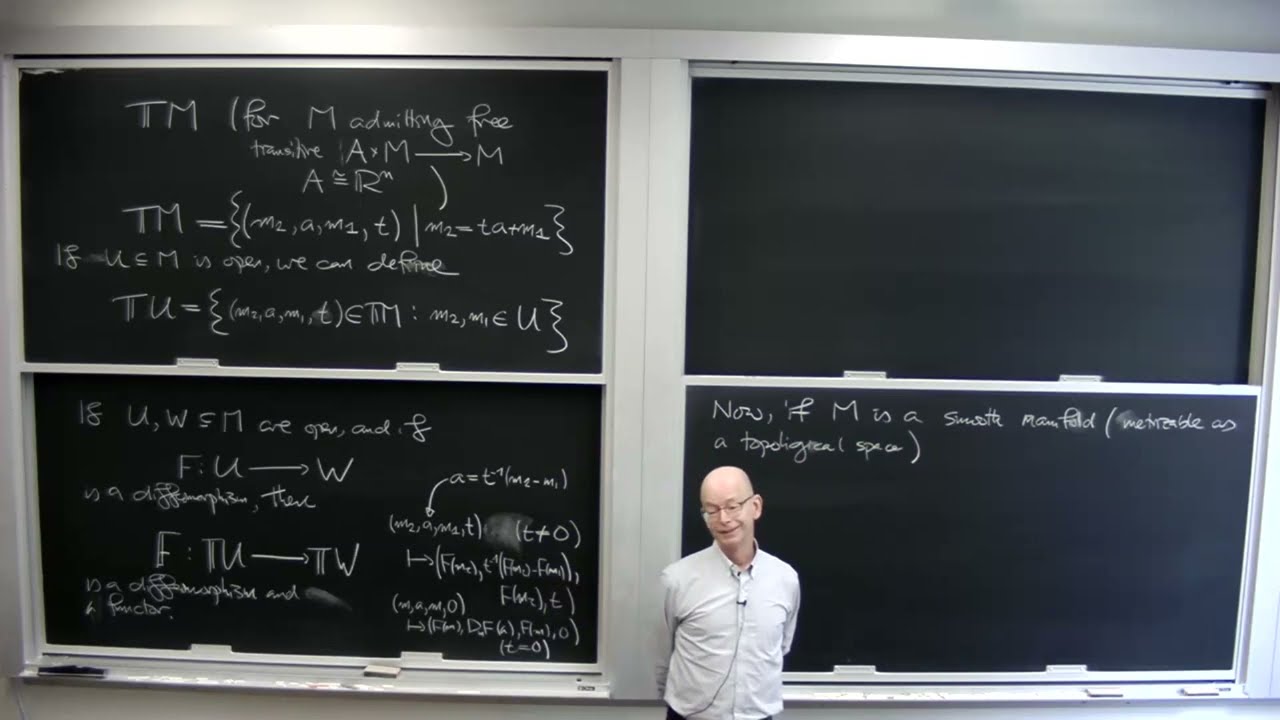 𝕋M (for M admitting free
transitive A × M ⟶ M
A ≅ ℝⁿ )
𝕋M = {(m₂, a, m₁, t) | m₂ = ta + m₁}
If U ⊆ M is open, we can define
𝕋U = {(m₂, a, m₁, t) ∈ 𝕋M : m₂, m₁ ∈ U}
If U, W ⊆ M are open, and if
F : U ⟶ W
is a diffeomorphism, then
𝔽 : 𝕋U ⟶ 𝕋W
is a diffeomorphism and
a functor.
a = t⁻¹(m₂ - m₁)
(m₂, a, m₁, t) (t ≠ 0)
↦ (F(m₂), t⁻¹(F(m₂) - F(m₁)),
F(m₂), t)
(m, a, m, 0)
↦ (F(m), DₘF(a), F(m), 0)
(t = 0)
Now, if M is a smooth manifold (metrizable as
a topoligical space)